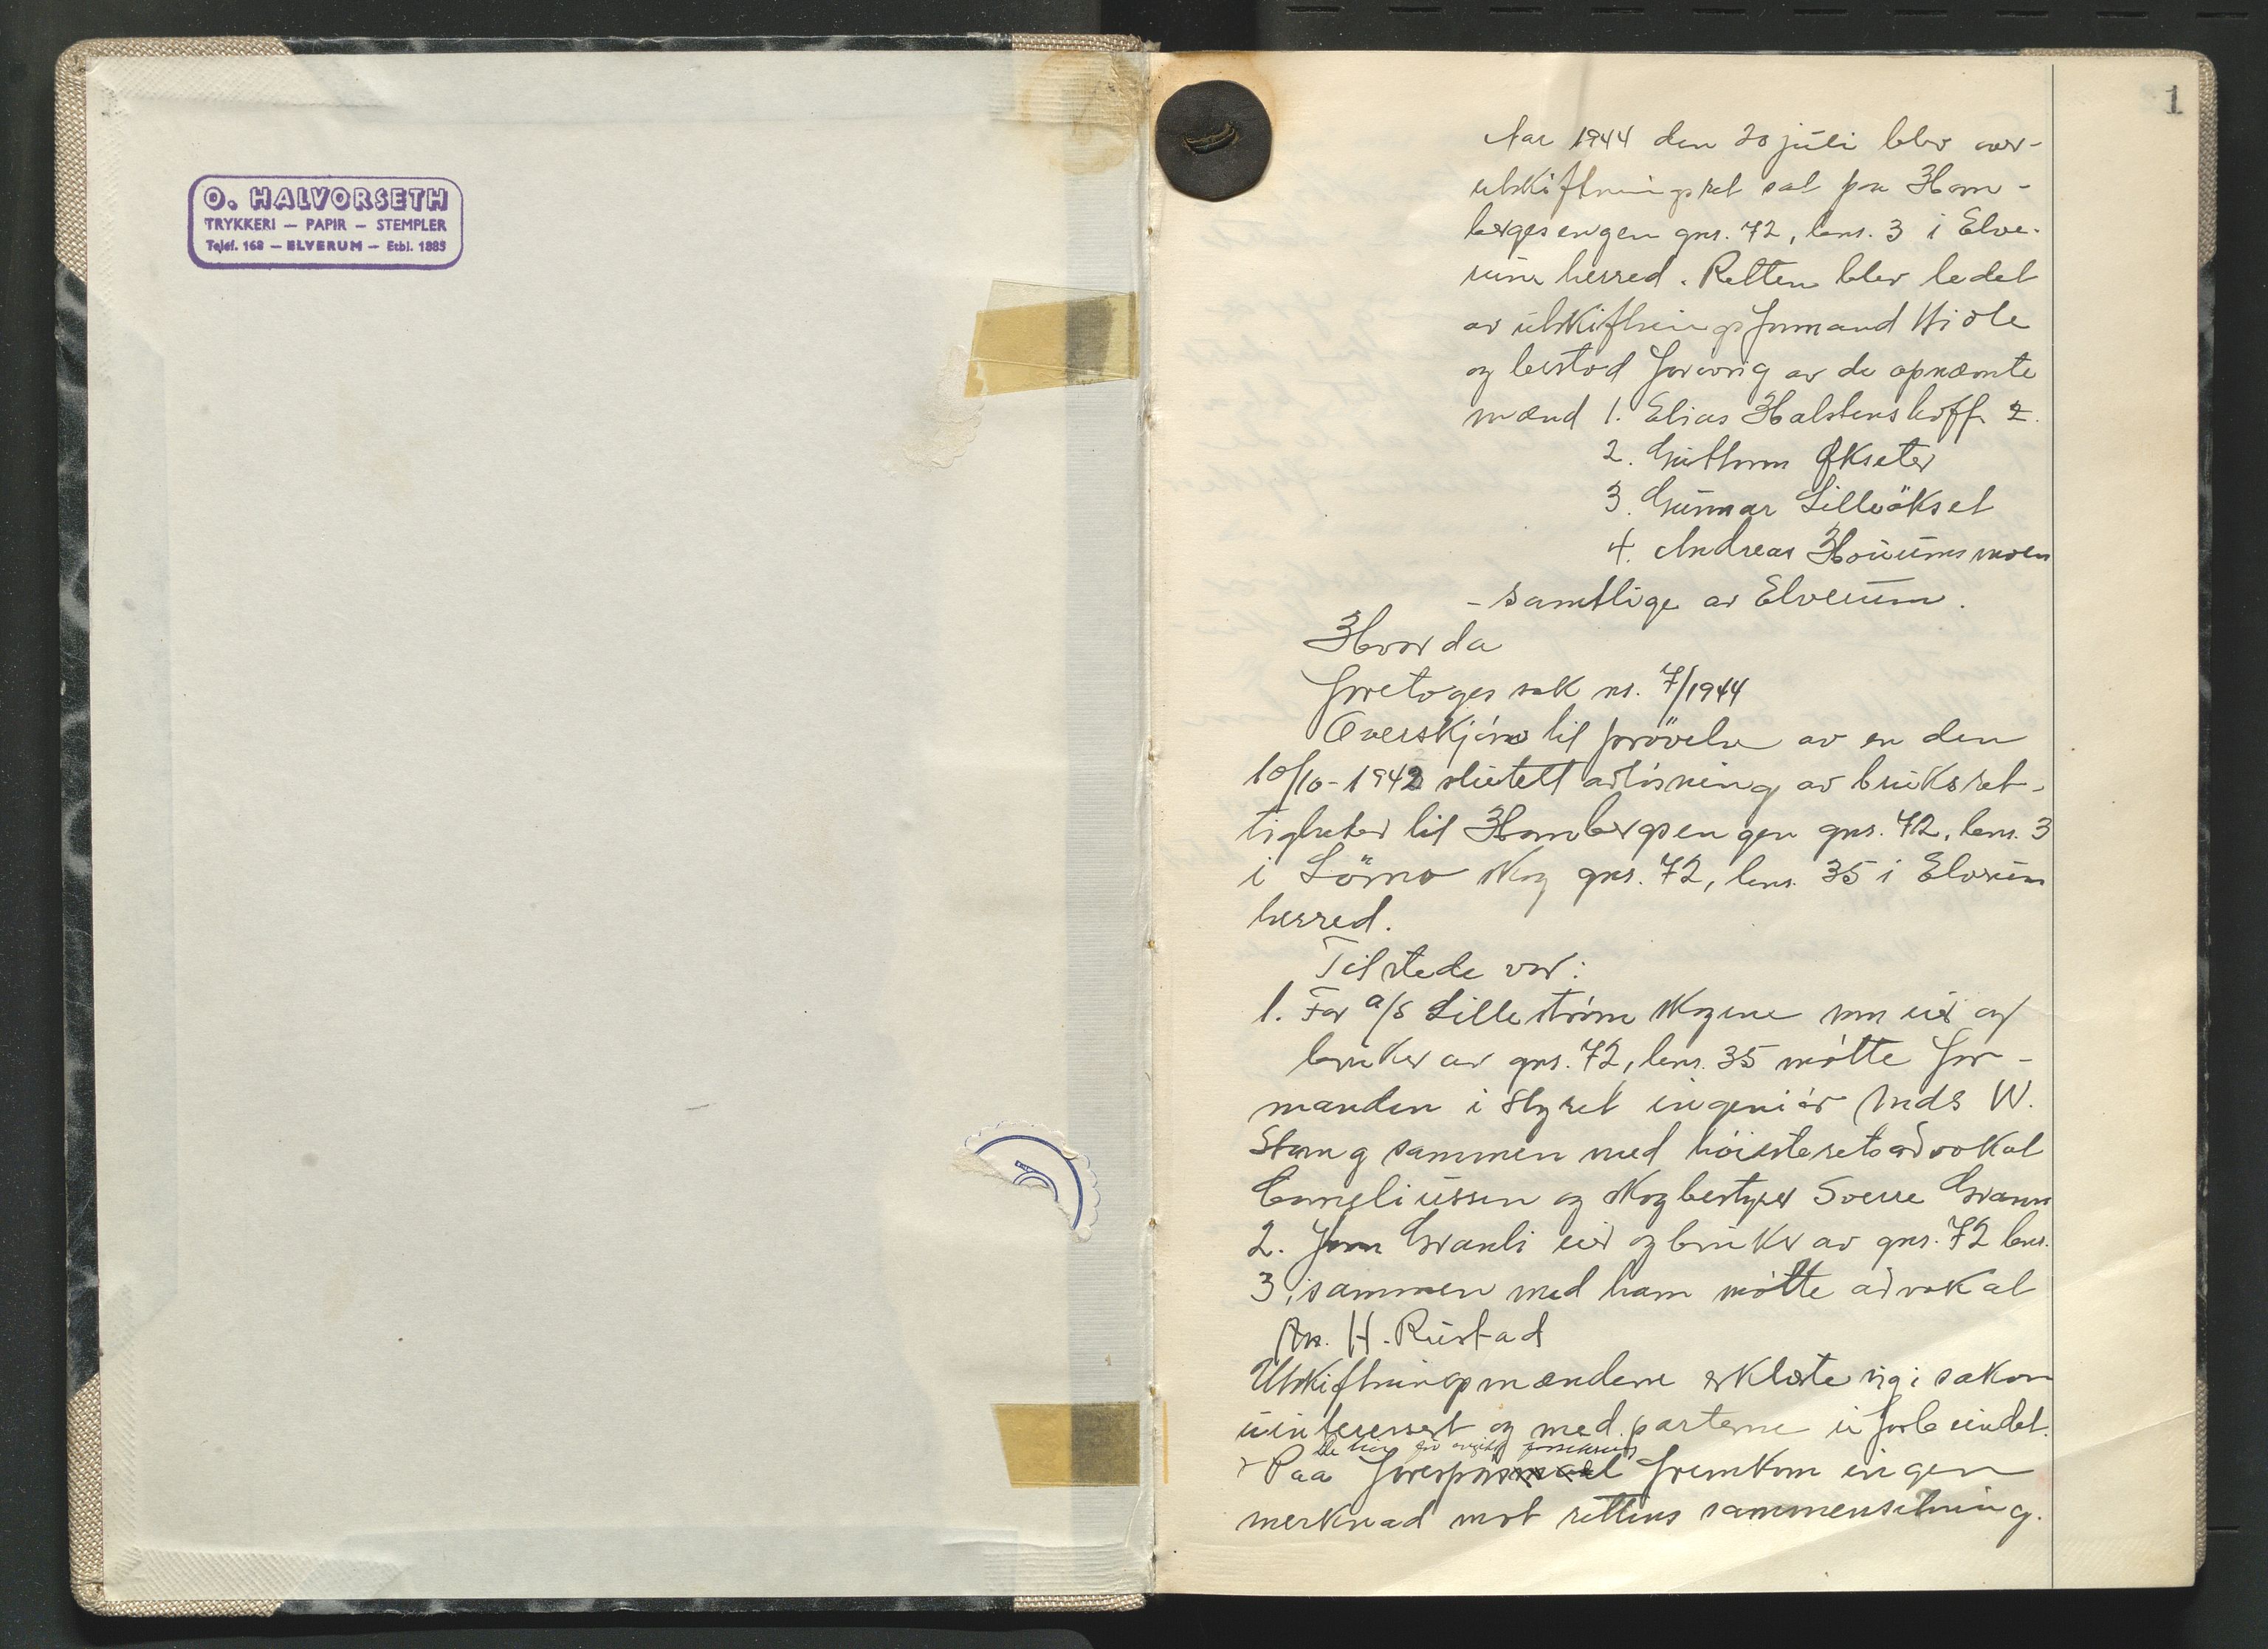 O. HALVORSETH
TRYKKERI — PAPIR — STEMPLER
Telef. 168 — ELVERUM — Etbl. 1885
1
Aar 1944 den 20 juli blev over-
utskiftningsret sat paa Ham-
bergsengen gnr. 72, bnr. 3 i Elve-
rum herred. Retten blev ledet
av utskiftningsformand Hiole
og bestod forøvrig av de opnævnte
mænd 1. Elias Halstenshoff 2.
2. Guttorm Økseter
3. Gunnar Lilleökset
4. Andreas Hoüumsmoen
- samtlige av Elverum.
Hvor da
foretoges sak nr. 7/1944
Overskjøn til prövelse av en den
10/10-1942 sluttet avløsning av bruksret-
tigheter til Hambergsengen gnr. 72, bnr. 3
i Sörmo skog gnr. 72, bnr. 35 i Elverum
herred.
Tilstede var:
1. For a/s Lillestrøm skogene som eier og
bruker av gnr. 72, bnr. 35 møtte for-
manden i styret ingeniør Mads W.
Stang sammen med høiesteretsadvokat
Corneliussen og skogbestyrer Sverre Grann
2. Jon Granli eier og bruker av gnr. 72 bnr.
3, sammen med ham møtte advokat
H. Rustad
Utskiftningsmændene erklærte sig i saken
uinteressert og med parterne uforbundet.
De har før avgitt forsikring
Paa forespørsmaal fremkom ingen
merknad mot rettens sammensetning.